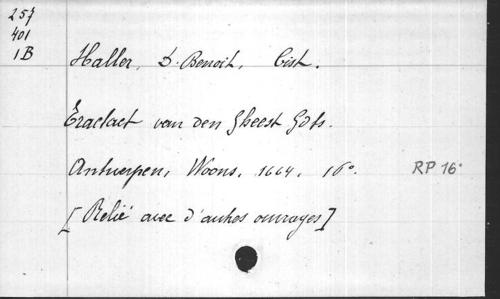 257
401
1B
Haller, D. Benoit, Cist.
Tractaet van den Gheest Gods.
Antwerpen, Woons, 1664, 16°. RP 16°
[Relié avec d'autres ouvrages]